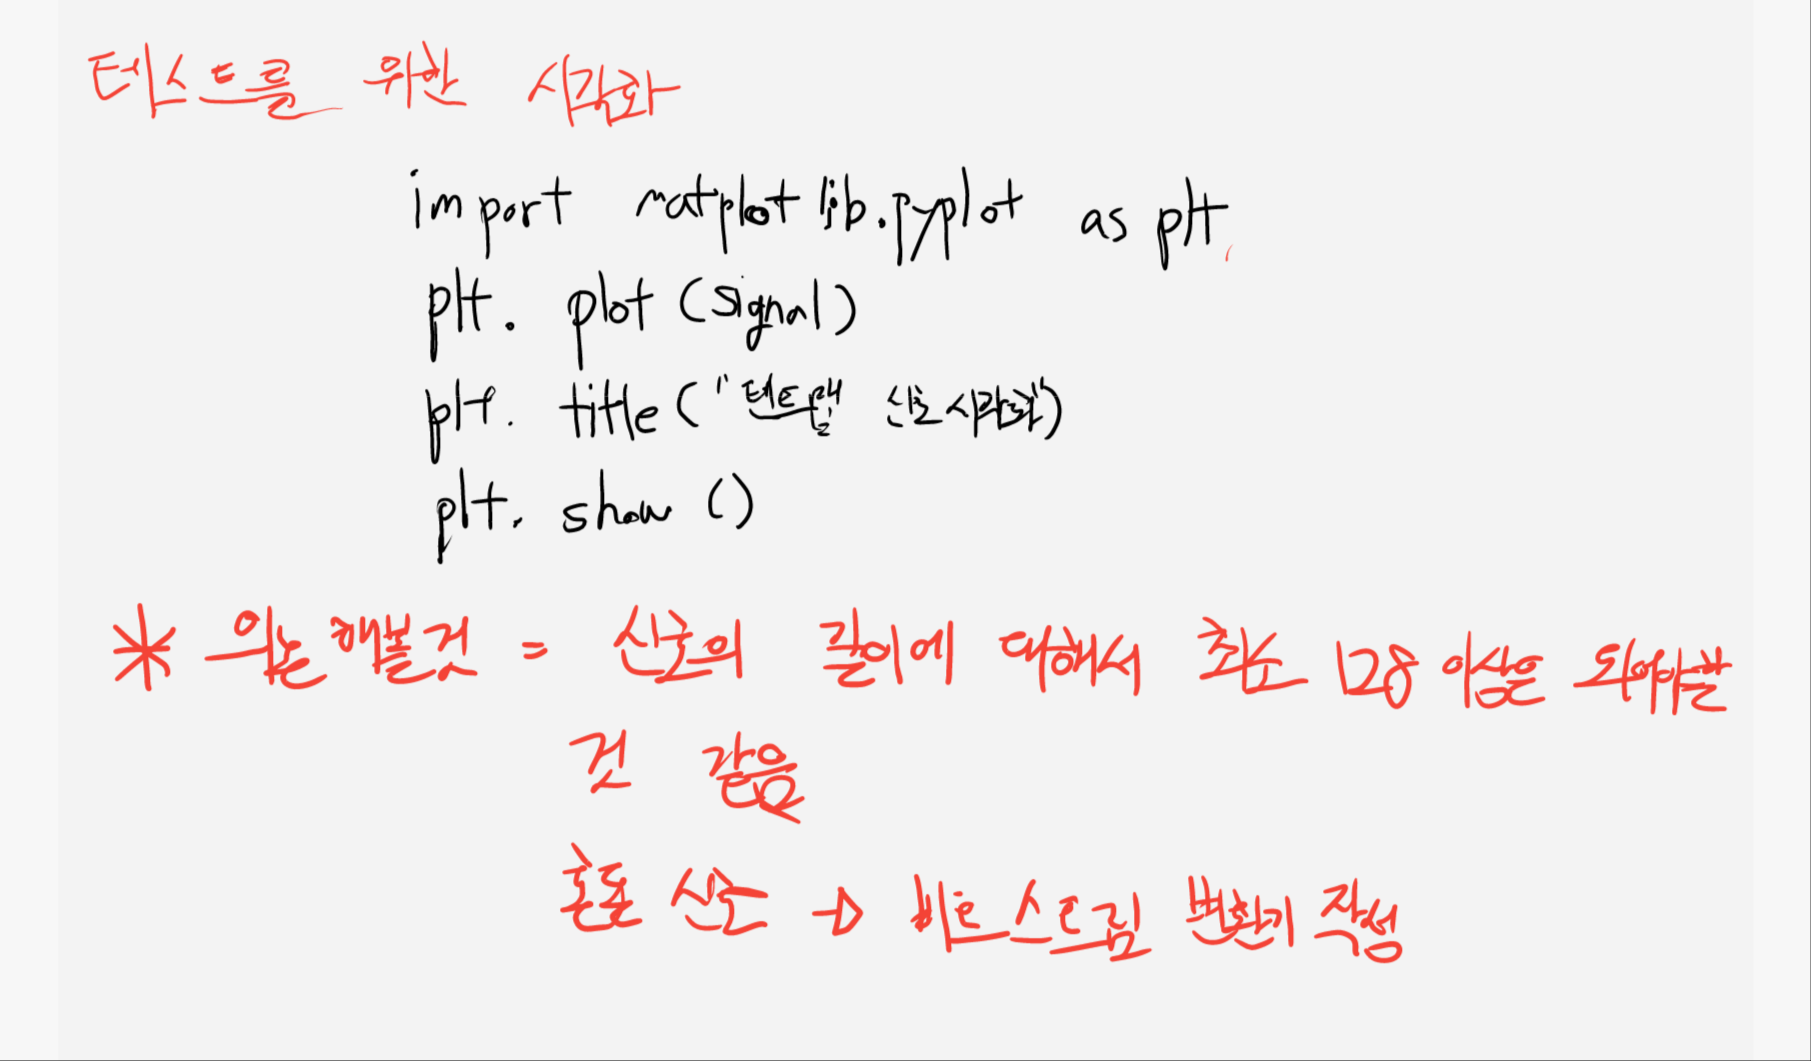 테스트를 위한 시각화
import matplotlib.pyplot as plt
plt. plot (signal)
plt. title ("텐트맵 신호시각화")
plt. show ()
* 의논해볼것 = 신호의 길이에 대해서 최소 128 이상은 되어야할
것 같음
혼돈 신호 → 비트스트림 변환기 작성